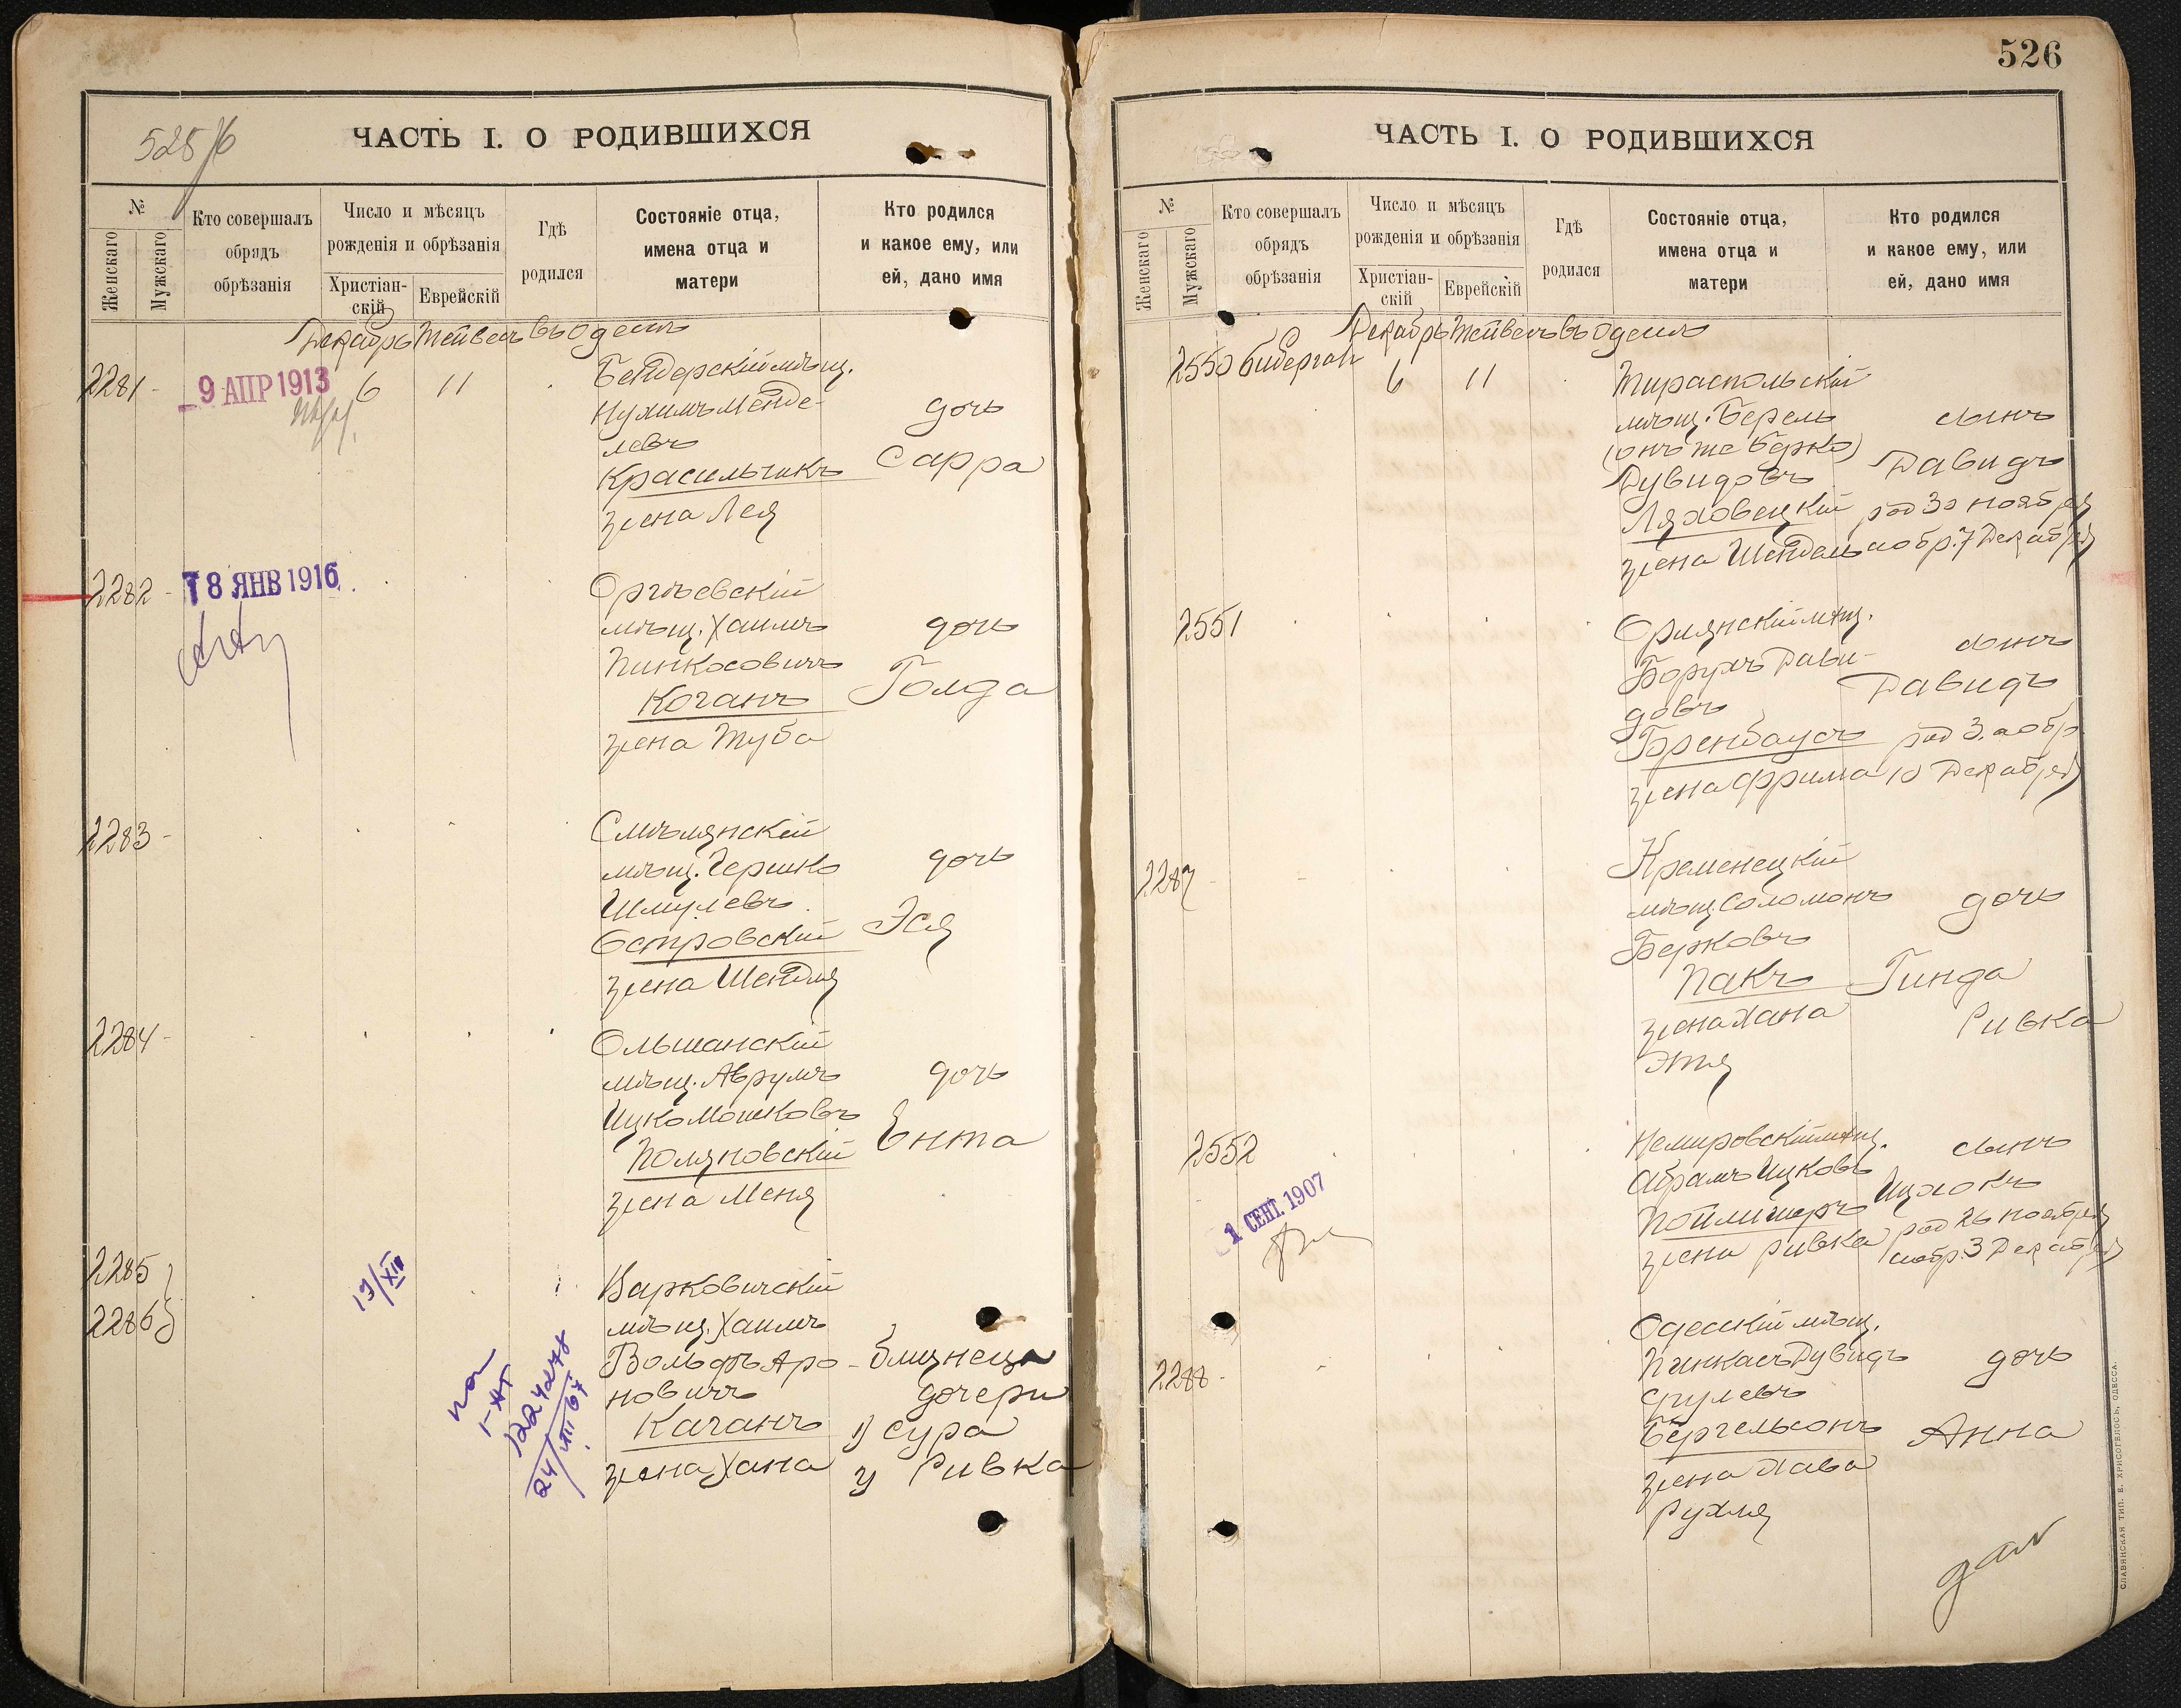 525/б
ЧАСТЬ I. О РОДИВШИХСЯ
№
Женскаго
Мужскаго
Кто совершалъ
обрядъ
обрѣзанія
Число и мѣсяцъ
рожденія и обрѣзанія
Христіан-
скій
Еврейскій
Гдѣ
родился
Состояніе отца,
имена отца и
матери
Кто родился
и какое ему, или
ей, дано имя
Декабрь Тейвесъ въ Одессѣ
2281 - 9 АПР 1913 6 11 Бендерскій мѣщ.
Нухимъ Менде-
левъ
дочь
Красильчикъ Сарра
жена Лея
2282 - 18 ЯНВ 1916 Оргѣевскій
мѣщ. Хаимъ дочь
Пинкосовичъ
Коганъ Голда
жена Туба
2283 - Смѣлянскій
мѣщ. Гершко дочь
Шмулевъ
Островскій Эся
жена Шендля
2284 - Ольшанскій
мѣщ. Аврумъ дочь
Ицко Мошковъ
Поляновскій Ента
жена Меня
2285
2286
19/XII
Варковичскій
мѣщ. Хаимъ
Вольфъ Аро- близнеца
новичъ дочери
Каганъ 1) Сура
жена Хана 2) Ривка
526
ЧАСТЬ I. О РОДИВШИХСЯ
№
Женскаго
Мужскаго
Кто совершалъ
обрядъ
обрѣзанія
Число и мѣсяцъ
рожденія и обрѣзанія
Христіан-
скій
Еврейскій
Гдѣ
родился
Состояніе отца,
имена отца и
матери
Кто родился
и какое ему, или
ей, дано имя
Декабрь Тейвесъ въ Одессѣ
2550 Бибергалъ 6 11 Тираспольскій
мѣщ. Берель сынъ
(онъ же Берко)
Дувидовъ Давидъ
Ляховецкій род 30 ноября
жена Шендель а обр. 7 Декабря
2551 мѣщ.
Борухъ Дави- сынъ
довъ Давидъ
Бренбаусъ род 3. а обр
жена Фрима 10 Декабря
2287 - Кременецкій
мѣщ. Соломонъ дочь
Берковъ
Пакъ Гинда
жена Хана Ривка
Этя
2552 Немировскій мѣщ. сынъ
Абрамъ Ицковъ Ицхокъ
1 СЕНТ. 1907
Пойлишеръ род 26 ноября
жена Ривка а обр. 3 Декабря
Одесскій мѣщ.
2288 - Пинкасъ Дувидъ дочь
Срулевъ
Бергельсонъ Анна
жена Хава
Рухля
СЛАВЯНСКАЯ ТИП. Е. ХРИСОГЕЛОСЪ, ОДЕССА.